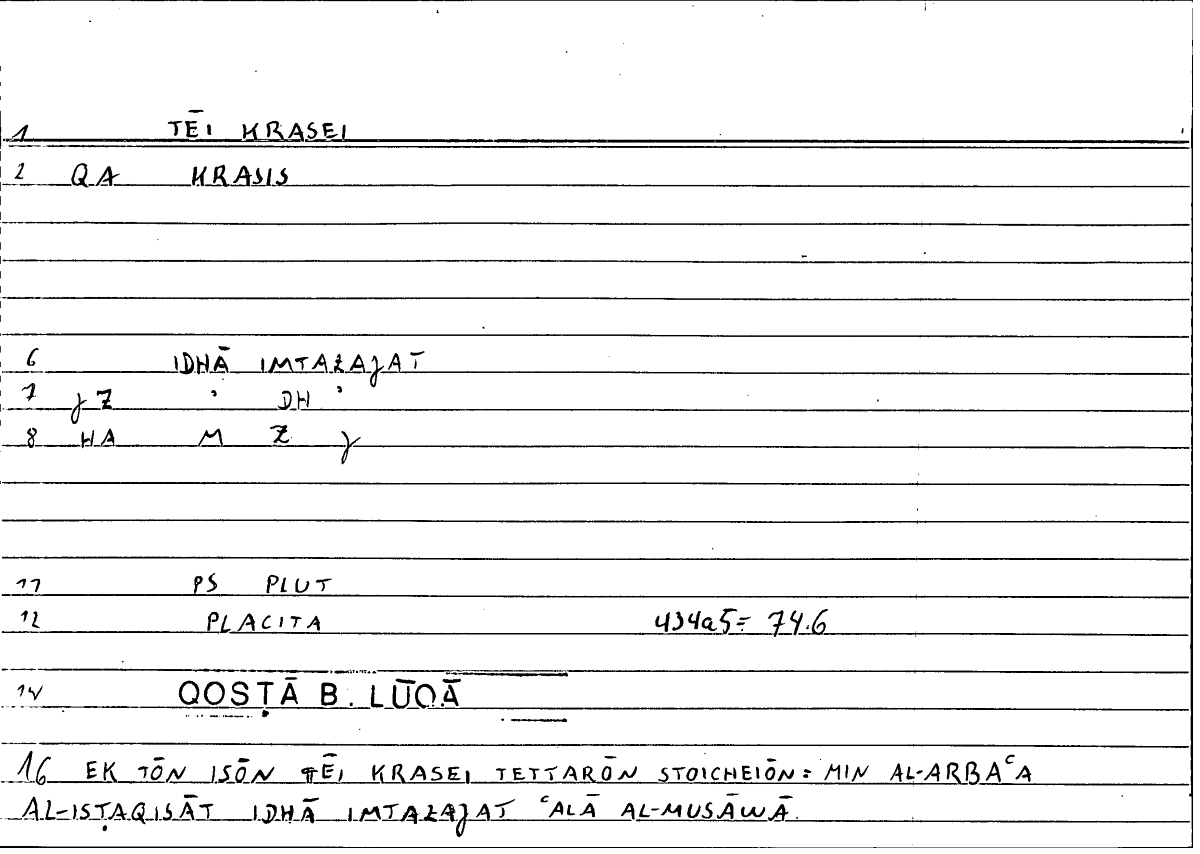 1 TĒI KRASEI
2 QA KRASIS
6 IDHĀ IMTAZAJAT
7 JZ ' DH '
8 HA M Z J
11 PS PLUT
12 PLACITA 434a5= 74.6
14 QOSṬĀ B. LŪQĀ
16 EK TŌN ISŌN TĒI KRASEI TETTARŌN STOICHEIŌN: MIN AL-ARBAᶜA
AL-ISṬAQISĀT IDHĀ IMTAZAJAT ᶜALĀ AL-MUSĀWĀ